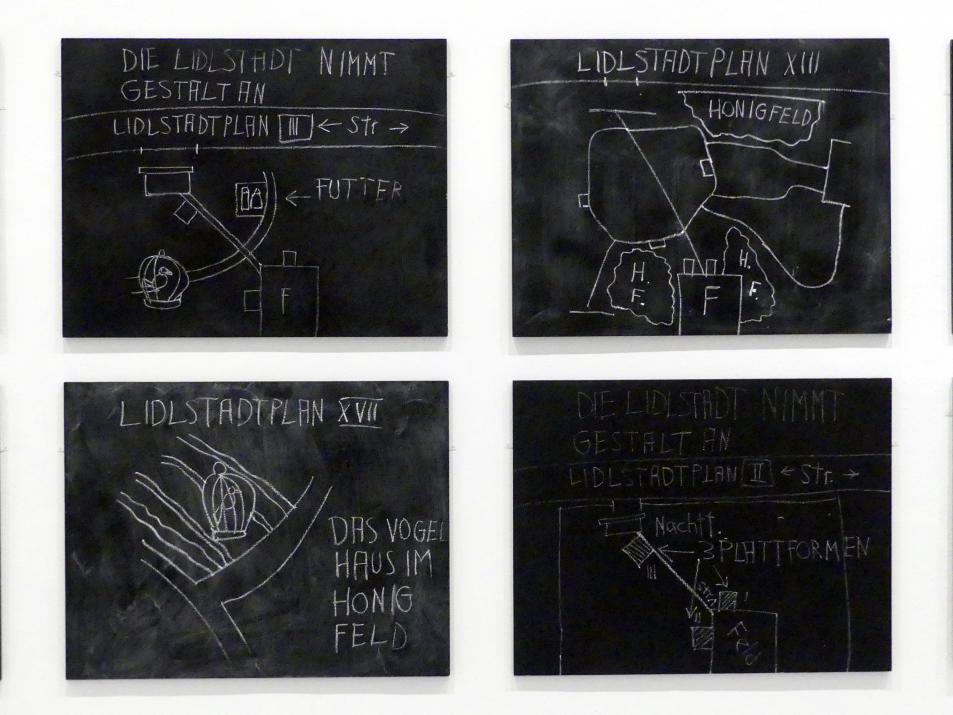 DIE LIDLSTADT NIMMT
GESTALT AN
LIDLSTADTPLAN III ← Str →
← FUTTER
F
LIDLSTADTPLAN XIII
HONIGFELD
H.
F.
H.
F.
F
LIDLSTADTPLAN XVII
DAS VOGEL
HAUS IM
HONIG
FELD
DIE LIDLSTADT NIMMT
GESTALT AN
LIDLSTADTPLAN II ← Str. →
Nachtt.
← 3 PLATTFORMEN
III
I
II